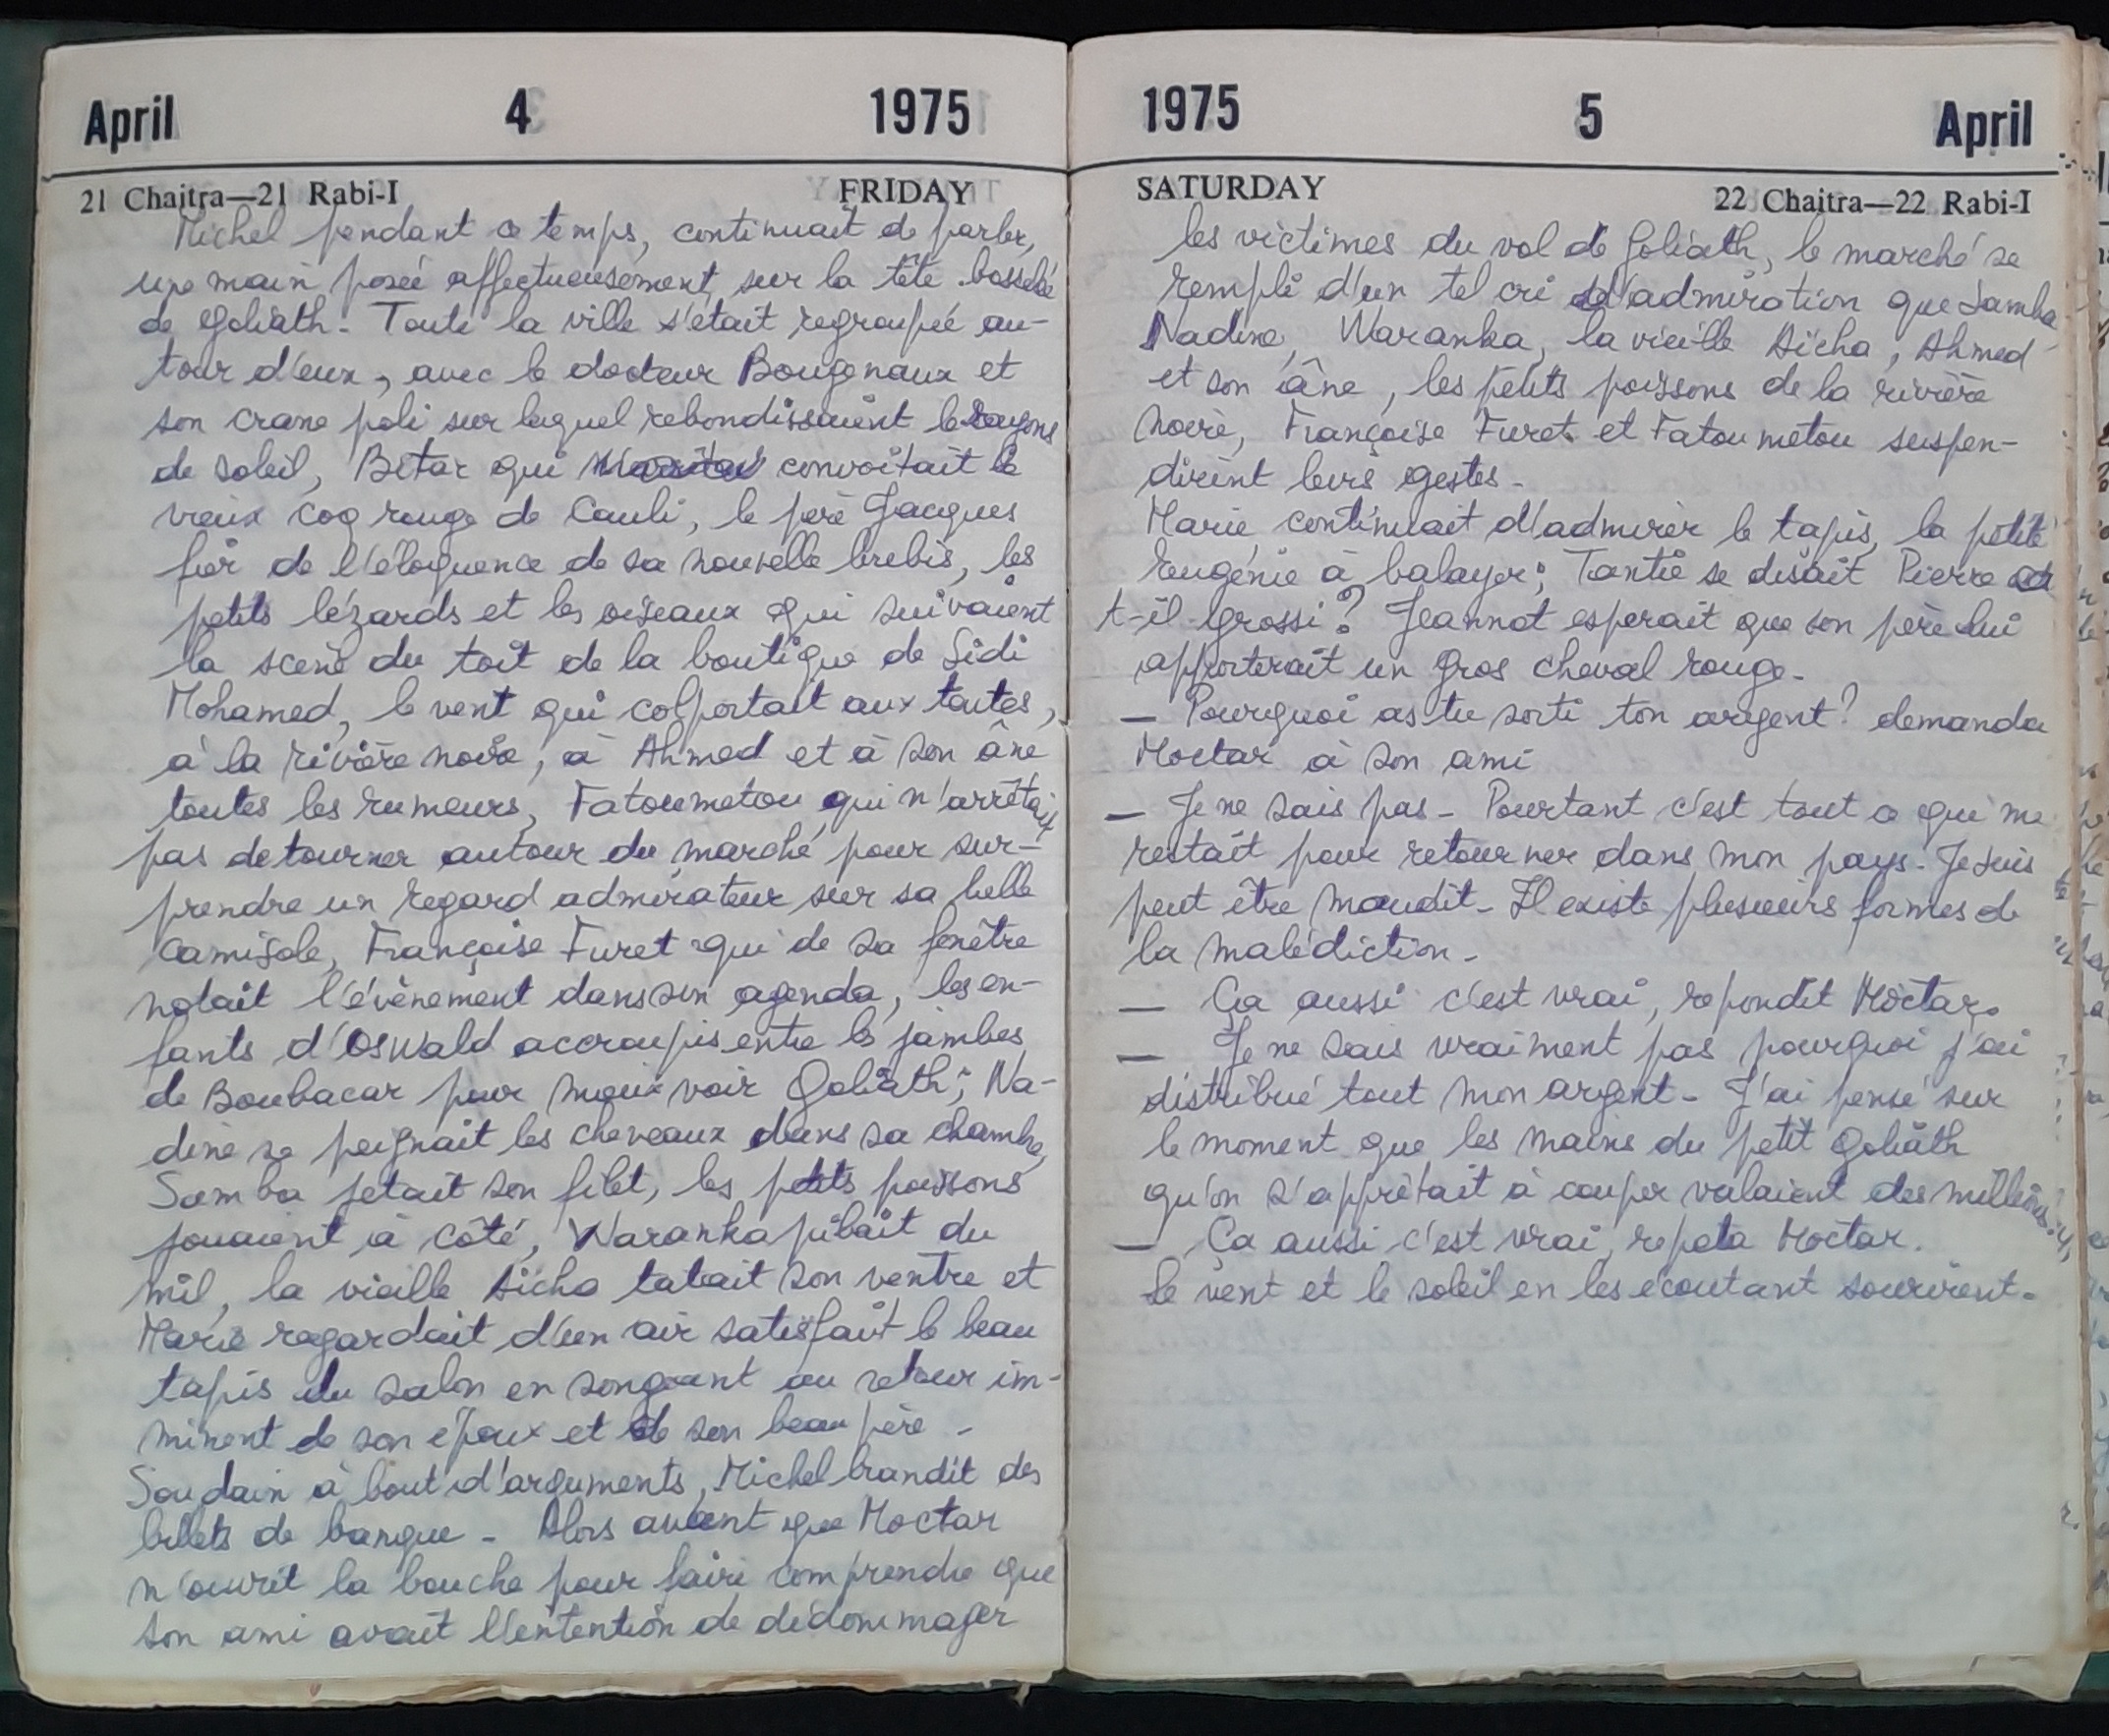 April 4 1975
21 Chaitra—21 Rabi-I FRIDAY
Michel pendant ce temps, continuait de parler,
une main posée affectueusement sur la tête bosselée
de Goliath. Toute la ville s'était regroupée au-
tour d'eux, avec le docteur Bougenaux et
son crane poli sur lequel rebondissaient les rayons
de soleil, Betar qui convoitait le
vieux coq rouge de Cauli, le père Jacques
fier de l'éloquence de sa nouvelle brebis, les
petits lézards et les oiseaux qui suivaient
la scène du toit de la boutique de Sidi
Mohamed, le vent qui colportait aux tentes,
à la rivière noire, à Ahmed et à son âne
toutes les rumeurs, Fatoumetou qui n'arrêtait
pas de tourner autour du marché pour sur-
prendre un regard admirateur sur sa belle
camisole, Françoise Furet qui de sa fenêtre
notait l'évènement dans son agenda, les en-
fants d'Oswald accroupis entre les jambes
de Boubacar pour mieux voir Goliath; Na-
dine se peignait les cheveaux dans sa chambre,
Samba jetait son filet, les petits poissons
jouaient à côté, Waranka pilait du
mil, la vieille Aïcha tatait son ventre et
Marie regardait d'un air satisfait le beau
tapis du salon en songeant au retour im-
minent de son époux et de son beau père -
Soudain à bout d'arguments, Michel brandit des
billets de banque - Alors avant que Moctar
n'ouvrit la bouche pour faire comprendre que
son ami avait l'intention de dédommager
1975 5 April
SATURDAY 22 Chaitra—22 Rabi-I
les victimes du vol de Goliath, le marché se
remplit d'un tel cri d'admiration que Samba
Nadine, Waranka, la vieille Aïcha, Ahmed
et son âne, les petits poissons de la rivière
noire, Françoise Furet et Fatoumetou suspen-
dirent leurs gestes -
Marie continuait d'admirer le tapis, la petite
Eugénie à balayer; Tantie se disait Pierre a
t-il grossi? Jeannot esperait que son père lui
apporterait un gros cheval rouge -
— Pourquoi as tu sorti ton argent? demanda
Moctar à son ami
— Je ne sais pas - Pourtant c'est tout ce qui me
restait pour retourner dans mon pays - Je suis
peut être maudit - Il existe plusieurs formes de
la malédiction -
— Ça aussi c'est vrai, repondit Moctar.
— Je ne sais vraiment pas pourquoi j'ai
distribué tout mon argent - J'ai pensé sur
le moment que les mains du petit Goliath
qu'on s'apprêtait à couper valaient des millions.
— Ça aussi c'est vrai, repeta Moctar.
Le vent et le soleil en les écoutant sourirent -